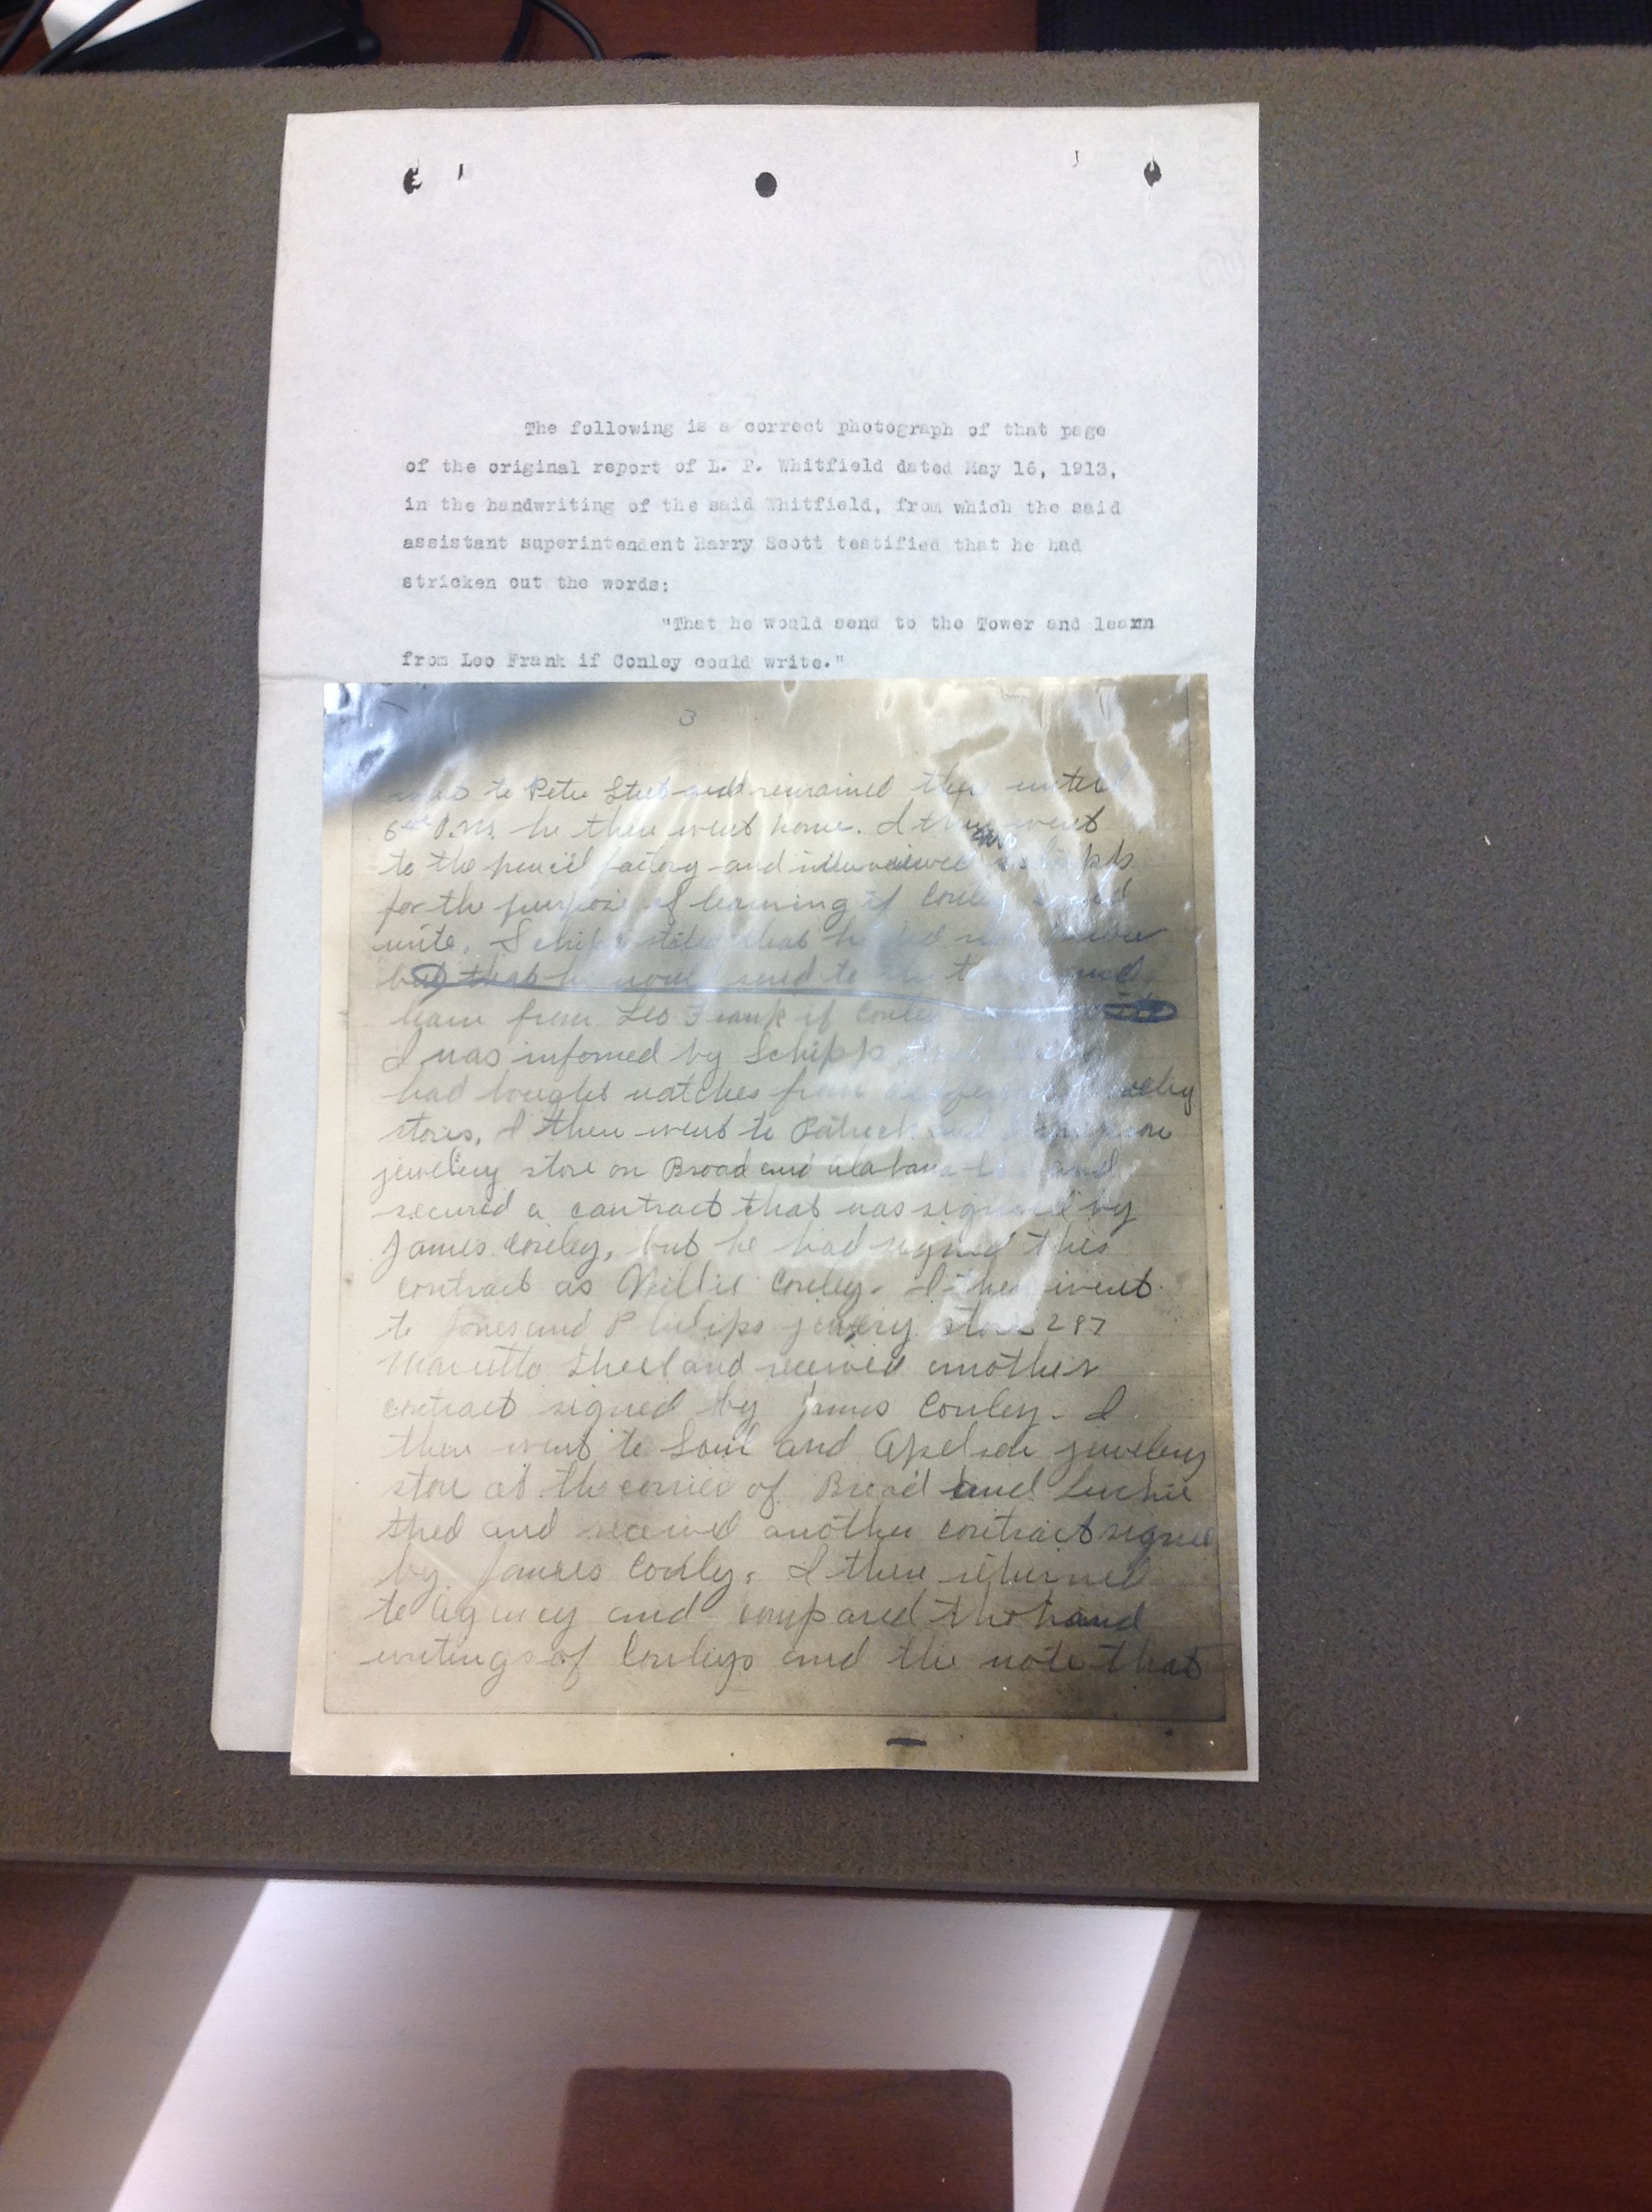 The following is a correct photograph of that page
of the original report of L. P. Whitfield dated May 16, 1913,
in the handwriting of the said Whitfield, from which the said
assistant superintendent Harry Scott testified that he had
stricken out the words:
"That he would send to the Tower and learn
from Leo Frank if Conley could write."
3
to Peter Street and remained there until
6 P.M. he then went home. I then went
to the pencil factory and interviewed
for the purpose of learning if Conley could
write. Schipp stated that he did not know
but that he would send to the and
learn from Leo Frank if Conley
I was informed by Schipp that
had bought watches from jewelry
stores, I then went to and
jewelery store on Broad and Alabama and
secured a contract that was signed by
James Conley, but he had signed this
contract as Willie Conley. I then went
to Jones and Philips store 287
Marietta Street and received another
contract signed by James Conley. I
then went to and jewelery
store at the corner of Broad and Luckie
and received another contract signed
by James Conley. I then returned
to agency and compared the hand
writings of Conleys and the note that